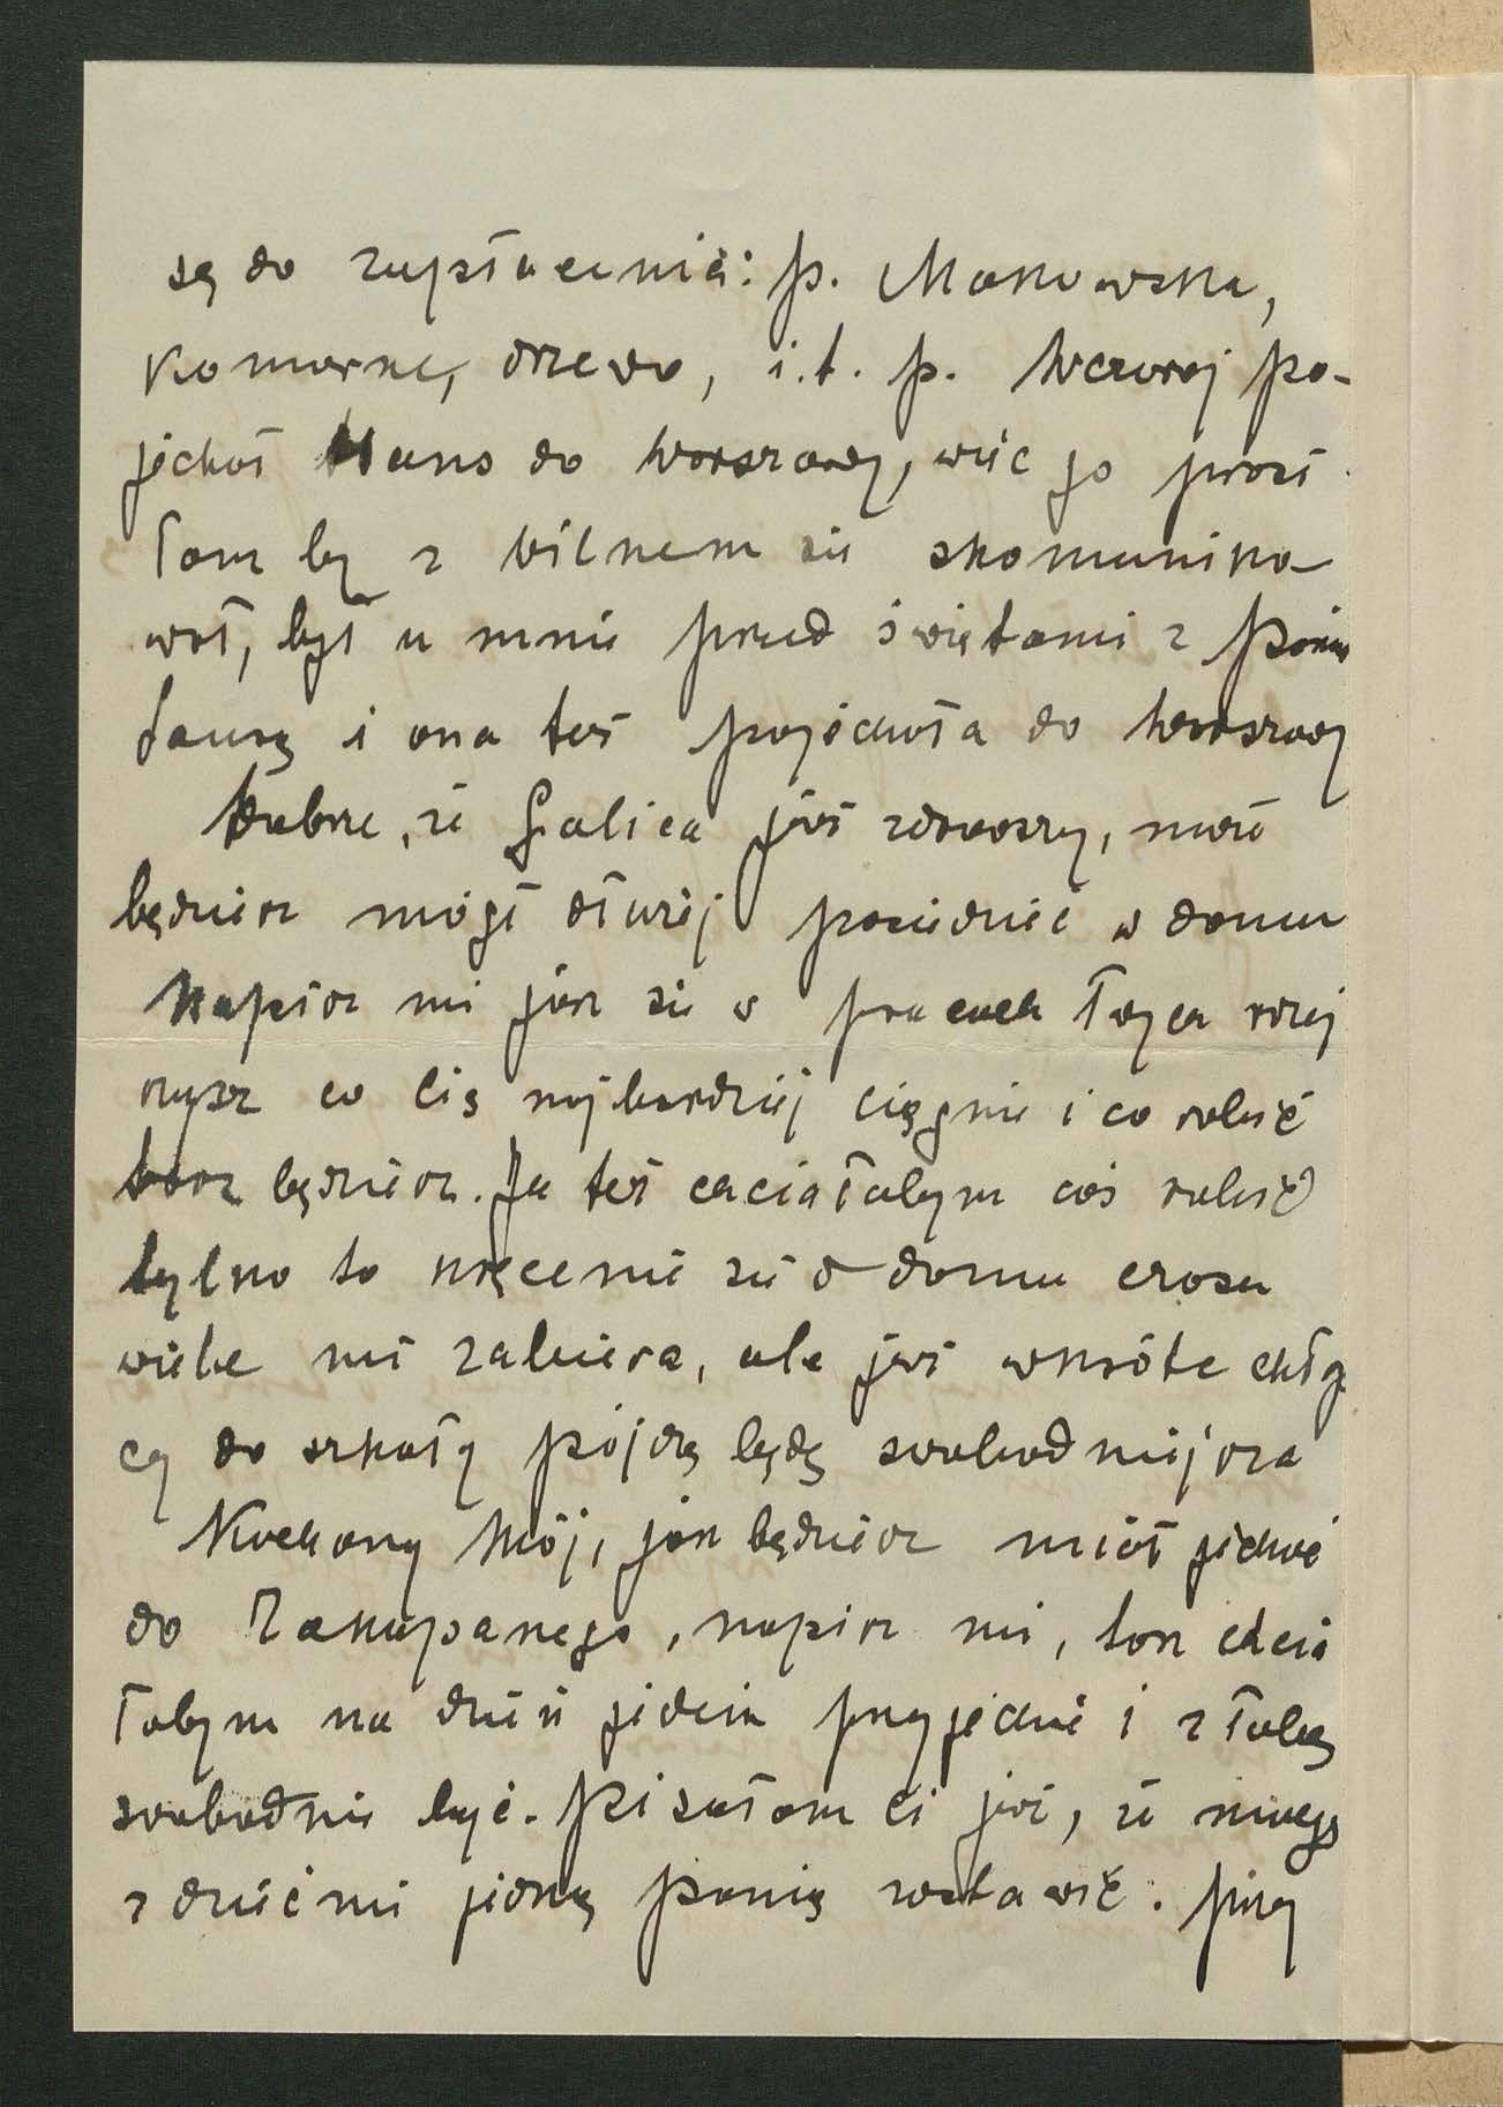 są do zapłacenia: p. Makowska,
komorne, drzewo, i.t.p. Wczoraj po-
jechał Hans do Warszawy, więc go prosi
łam by z Wilnem się skomuniko
wał, był u mnie przed świętami z
i ona też pojechała do Warszawy
Dobrze, że Galica już zdrowszy, może
będziesz mógł dłużej posiedzieć w domu
Napisz mi jak się w pracach Twych rozej
rzysz co Cię najbardziej ciągnie i co robić
będziesz. Ja też chciałabym coś robić
tylko to kręcenie się w domu czasu
wiele mi zabiera, ale już wkrótce chłop
cy do szkoły pójdą będę swobodniejsza
Kochany Mój, jak będziesz miał jechać
do Zakopanego, napisz mi, tak chcia
łabym na dzień jeden przyjechać i z Tobą
swobodnie być. Pisałam Ci już, że mogę
z dziećmi jedną panią zostawić. Przy